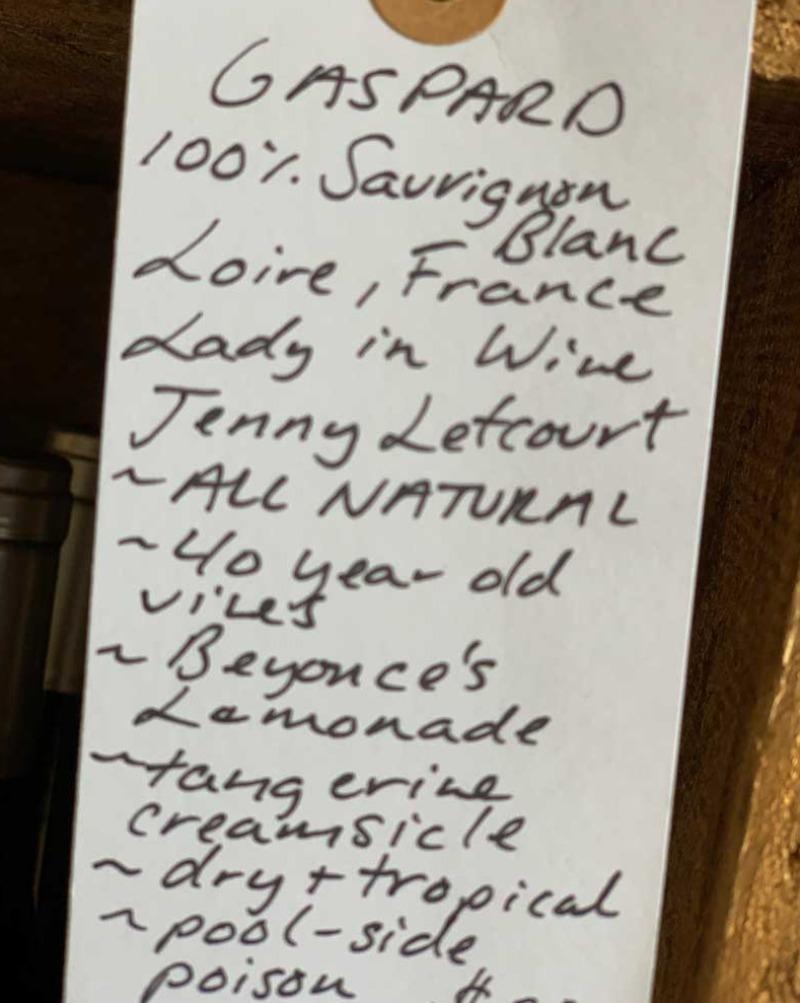 GASPARD
100% Sauvignon
Blanc
Loire, France
Lady in Wine
Jenny Lefcourt
~ALL NATURAL
~40 year old
vines
~Beyonce's
Lemonade
~tangerine
creamsicle
~dry + tropical
~pool-side
poison